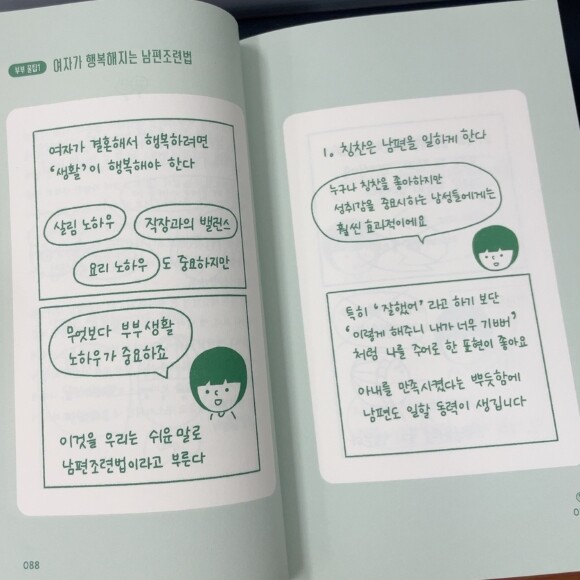 부부 꿀팁1 여자가 행복해지는 남편조련법
여자가 결혼해서 행복하려면
'생활'이 행복해야 한다
살림 노하우 직장과의 밸런스
요리 노하우 도 중요하지만
무엇보다 부부생활
노하우가 중요하죠
이것을 우리는 쉬운 말로
남편조련법이라고 부른다
088
1. 칭찬은 남편을 일하게 한다
누구나 칭찬을 좋아하지만
성취감을 중요시하는 남성들에게는
훨씬 효과적이에요
특히 "잘했어" 라고 하기 보단
'이렇게 해주니 내가 너무 기뻐'
처럼 나를 주어로 한 표현이 좋아요
아내를 만족시켰다는 뿌듯함에
남편도 일할 동력이 생깁니다